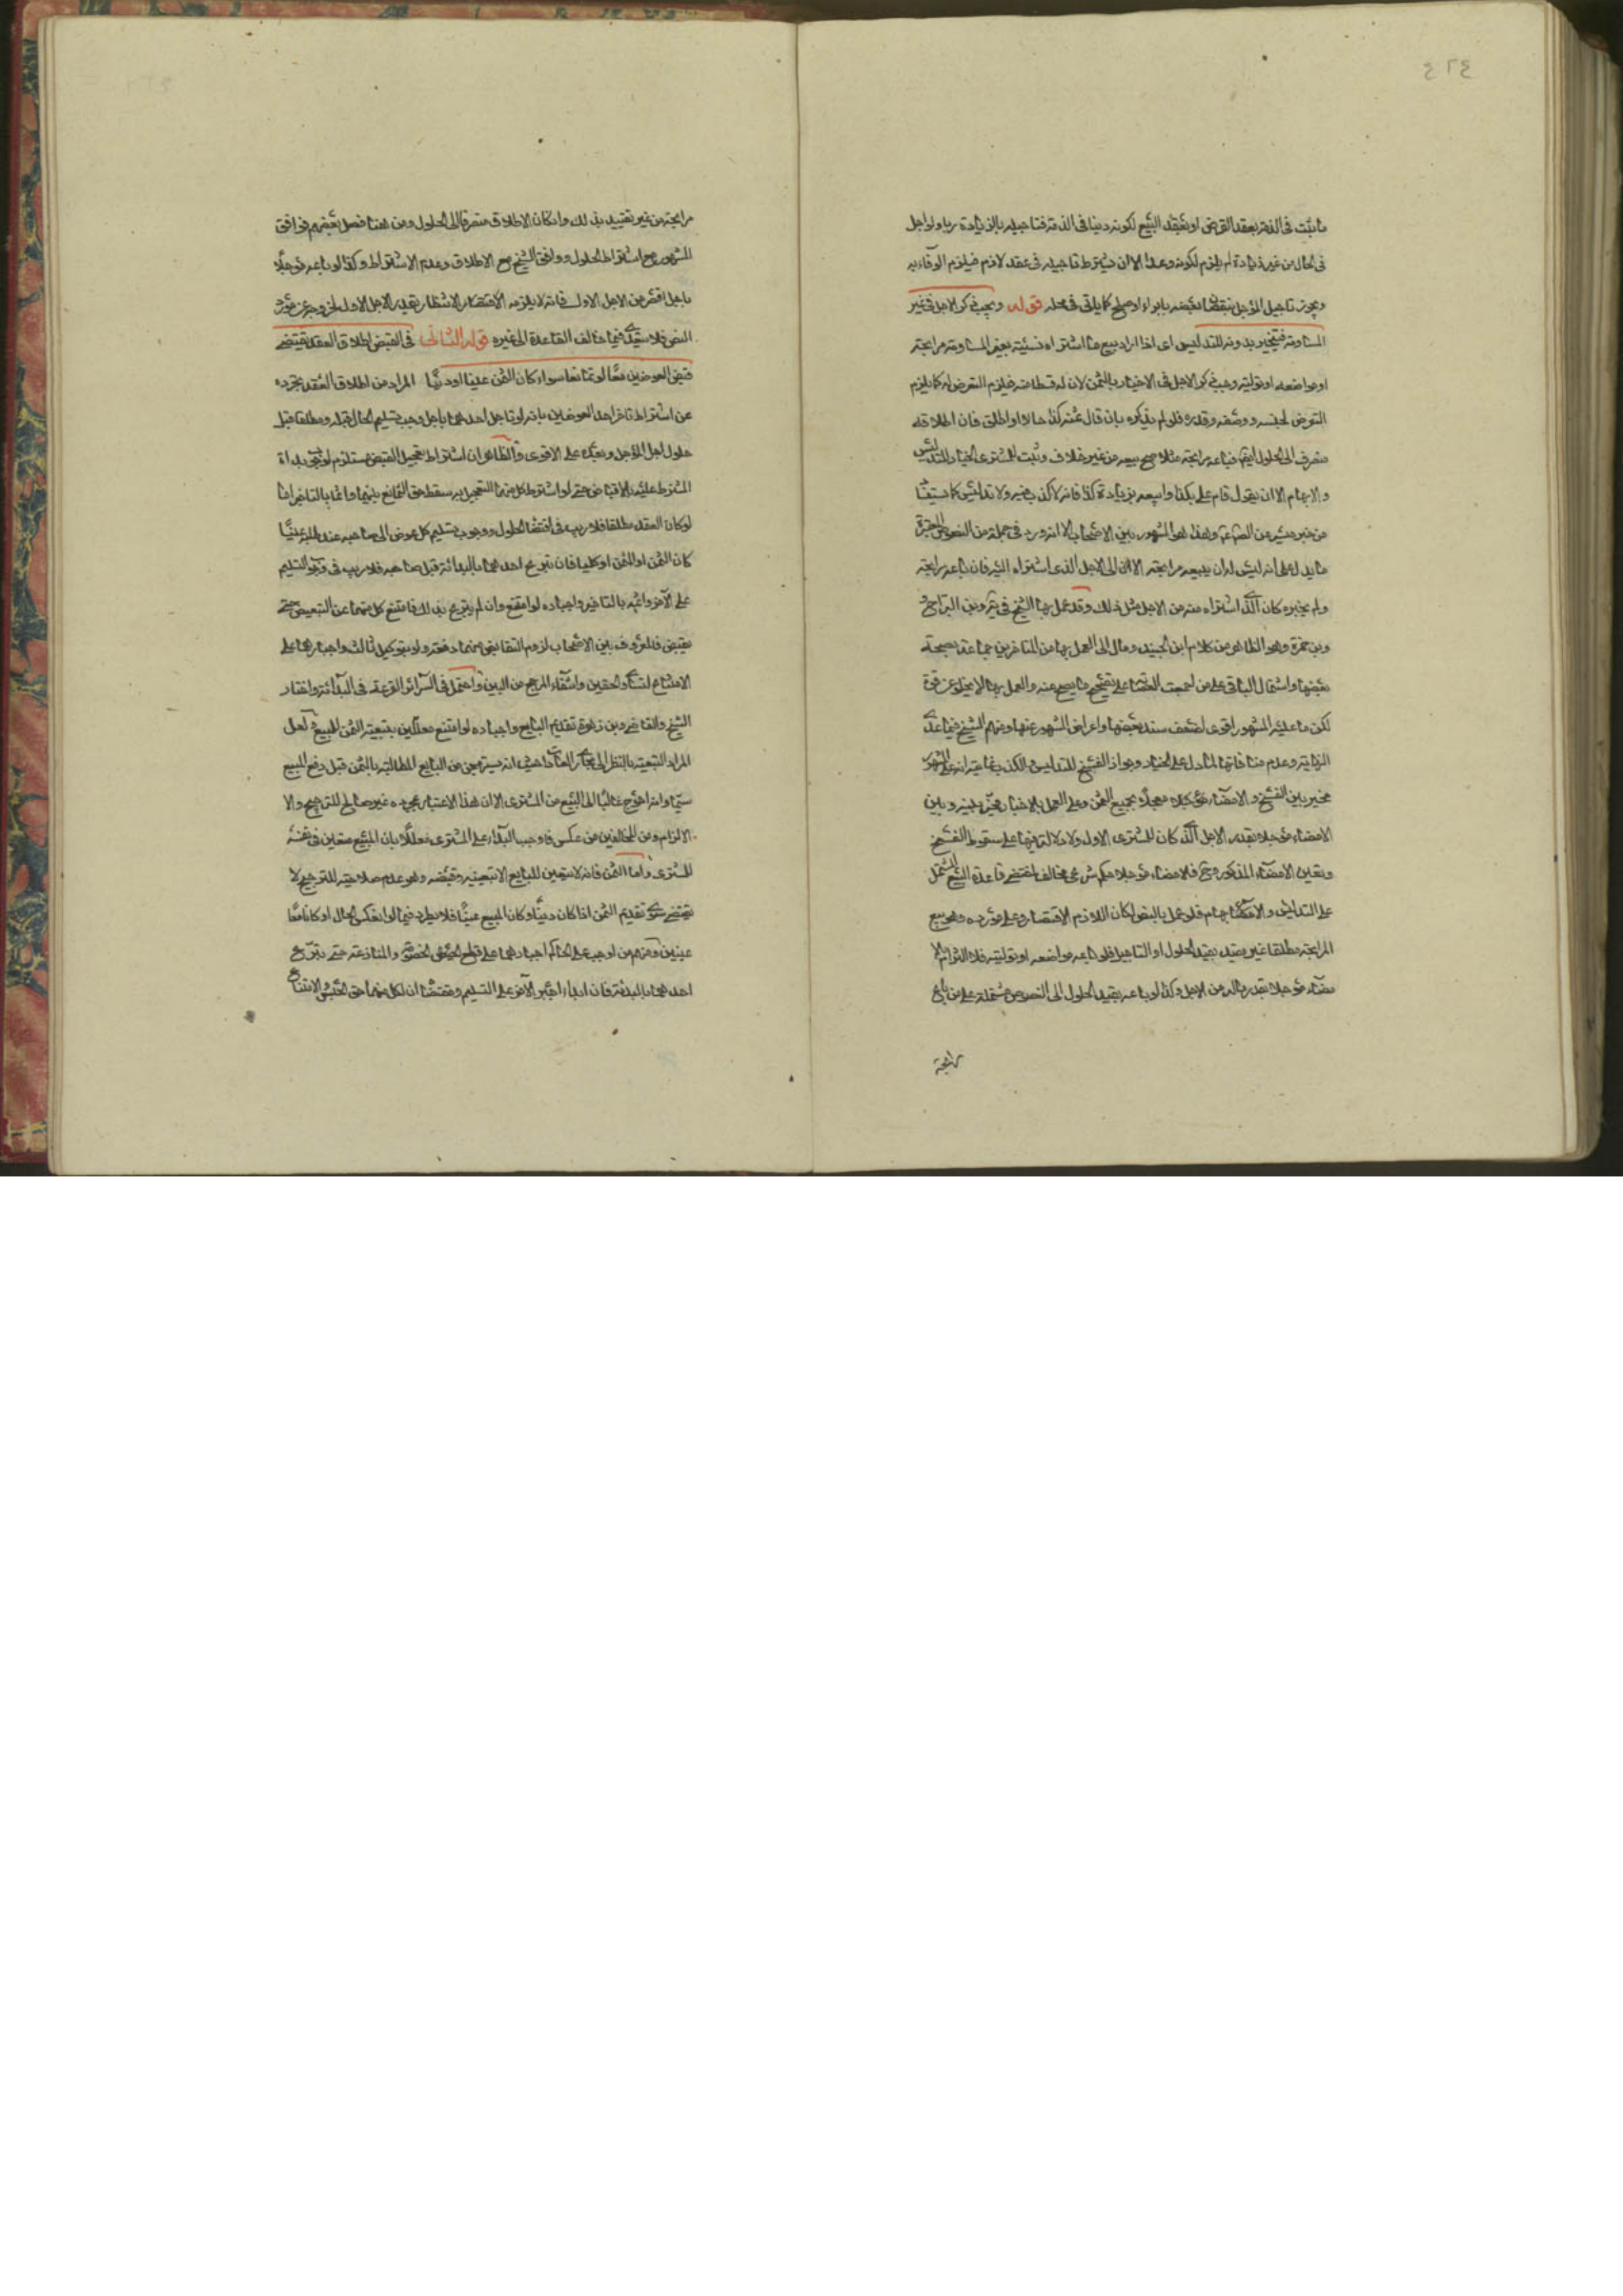 ٤٢٤
ما يثبت في الذمة بعقد القرض او بعقد البيع لكونه دينا في الذمة فتاجيله بالزيادة ربا ولو اجل
في الحال من غير زيادة لم يلزم لكونه وعدا الا ان يشترط تاجيله في عقد لازم فيلزم الوفاء به
ويجوز تاجيل المؤجل بنقصان بعضه بابراء او صلح كما ياتي في محله قوله ويجب ذكر الاجل في غير
المساومة فيتخير بدونه للتدليس اى اذا اراد بيع ما اشتراه نسيئة بغير المساومة مرابحة
او مواضعه او تولية وجب ذكر الاجل في الاخبار بالثمن لان له قسطا منه فيلزم التعرض له كما يلزم
التعرض لجنسه ووصفه وقدره فلو لم يذكره بان قال ثمنه كذا حالا او اطلق فان اطلاقه
منصرف الى الحلول ايضا فباعه مرابحة مثلا صح بيعه من غير خلاف وثبت للمشترى الخيار للتدليس
والابهام الا ان يقول قام على بكذا وابيعه بزيادة كذا فانه لا كذب فيه ولا تدليس كما يستفاد
من خبر ميسر من الصناعة وهذا هو المشهور بين الاصحاب الا انه ورد في جملة من النصوص المعتبرة
ما يدل على انه ليس له ان يبيعه مرابحة الا الى الاجل الذى اشتراه اليه فان باعه مرابحة
ولم يخبره كان للذي اشتراه منه من الاجل مثل ذلك وقد عمل بها الشيخ في ية وبن البراج و
وبن حمزة وهو الظاهر من كلام ابن الجنيد ومال الى العمل بها من المتاخرين جماعة لصحة
بعضها واشتمال الباقي على من اجمعت العصابة على تصحيح ما يصح عنه والعمل بها لا يخلو عن قوة
لكن ما عليه المشهور اقوى لضعف سند بعضها واعراض المشهور عنها ومنهم الشيخ فيما عدا
النهاية وعدم منافاتها لما دل على الخيار وجواز الفسخ للتدليس والكذب غايته انه على المشهور
مخير بين الفسخ والامضاء مؤجلا معجلا بجميع الثمن وعلى العمل بالاخبار مخير بينه وبين
الامضاء مؤجلا بقدر الاجل الذي كان للمشترى الاول ولا دلالة فيها على سقوط الفسخ
وتعين الامضاء المذكور فالامضاء مؤجلا حكم شرعي مخالف لمقتضى قاعدة البيع المشتمل
على التدليس والابهام فلو عمل بالنص لكان اللازم الاقتصار على مورده وهو بيع
المرابحة مطلقا غير مقيد بقيد الحلول او التاجيل فلو باعه مواضعه او تولية فلا التزام بالا
مضاء مؤجلا بقدر ماله من الاجل وكذا لو باعه بقيد الحلول الى النصوص مشتملة على من باع
مرابحة
مرابحة من غير تقييد بذلك وان كان الاطلاق منصرفا الى الحلول ومن هنا فصل بعضهم فوافق
المشهور مع اشتراط الحلول ووافق الشيخ مع الاطلاق وعدم الاشتراط وكذا لو باعه مؤجلا
باجل اقصر من الاجل الاول فانه لا يلزمه الاقتصار الانتظار بقدر الاجل الاول لخروجه عن مورد
النص فلا يتعدى فيما خالف القاعدة الى غيره قوله الثاني في القبض اطلاق العقد يقتضى
قبض العوضين معا لو تمانعا سواء كان الثمن عينا او دينا المراد من اطلاق العقد تجرده
عن اشتراط تاخر احد العوضين بانه لو تاجل احدهما باجل وجب تسليم الحال قبله ومطلقا قبل
حلول اجل المؤجل وبعده على الاقوى والظاهر ان اشتراط تعجيل القبض مستلزم لوجوب بدأة
المشترط عليه بالاقباض حتى لو اشترط كل منهما التعجيل به سقط حق التمانع بينهما واثما بالتاخير اما
لو كان العقد مطلقا فلا ريب في اقتضاء الحلول ووجوب تسليم كل عوض الى صاحبه عند طلبه عينا
كان الثمن او المثمن او كليا فان تبرع احدهما بالبدائة قبل صاحبه فلا ريب في وجوب التسليم
على الآخر واثمه بالتاخير واجباره لو امتنع وان لم يتبرع بذلك فامتنع كل منهما عن التبعيض حتى
يقبض فالمعروف بين الاصحاب لزوم التقابض منهما دفعة ولو بتوكيل ثالث واجبارهما على
الامتناع لتساوى الحقين وانتفاء المرجح من البين واحتمل في السرائر القرعة في البدائة واختار
الشيخ والقاضي وبن زهرة تقديم البايع واجباره لو امتنع معللين بتبعية الثمن للمبيع ولعل
المراد التبعية بالنظر الى مجاري العادات حيث انه يستهجن من البايع المطالبة بالثمن قبل دفع المبيع
سيما وانه احوج غالبا الى البيع من المشترى الا ان هذا الاعتبار بمجرده غير صالح للترجيح والا
الالزام ومن المخالفين من عكس فاوجب البدأة على المشترى معللا بان المبيع متعين في نفسه
للمشترى واما الثمن فانه لا يتعين للبايع الا بتعيينه وقبضه وهو عدم صلاحيته للترجيح لا
يقتضى سوى تقديم الثمن اذا كان دينا وكان المبيع عينا فلا يطرد فيما لو انعكس الحال او كانا معا
عينين ومنهم من اوجب على الحاكم اجبارهما على قطع الخصومة والمنازعة حتى يتبرع
احدهما بالبدئة فان ابياء اجبر الآخر على التسليم ومقتضاه ان لكل منهما حق الحبس والامتناع